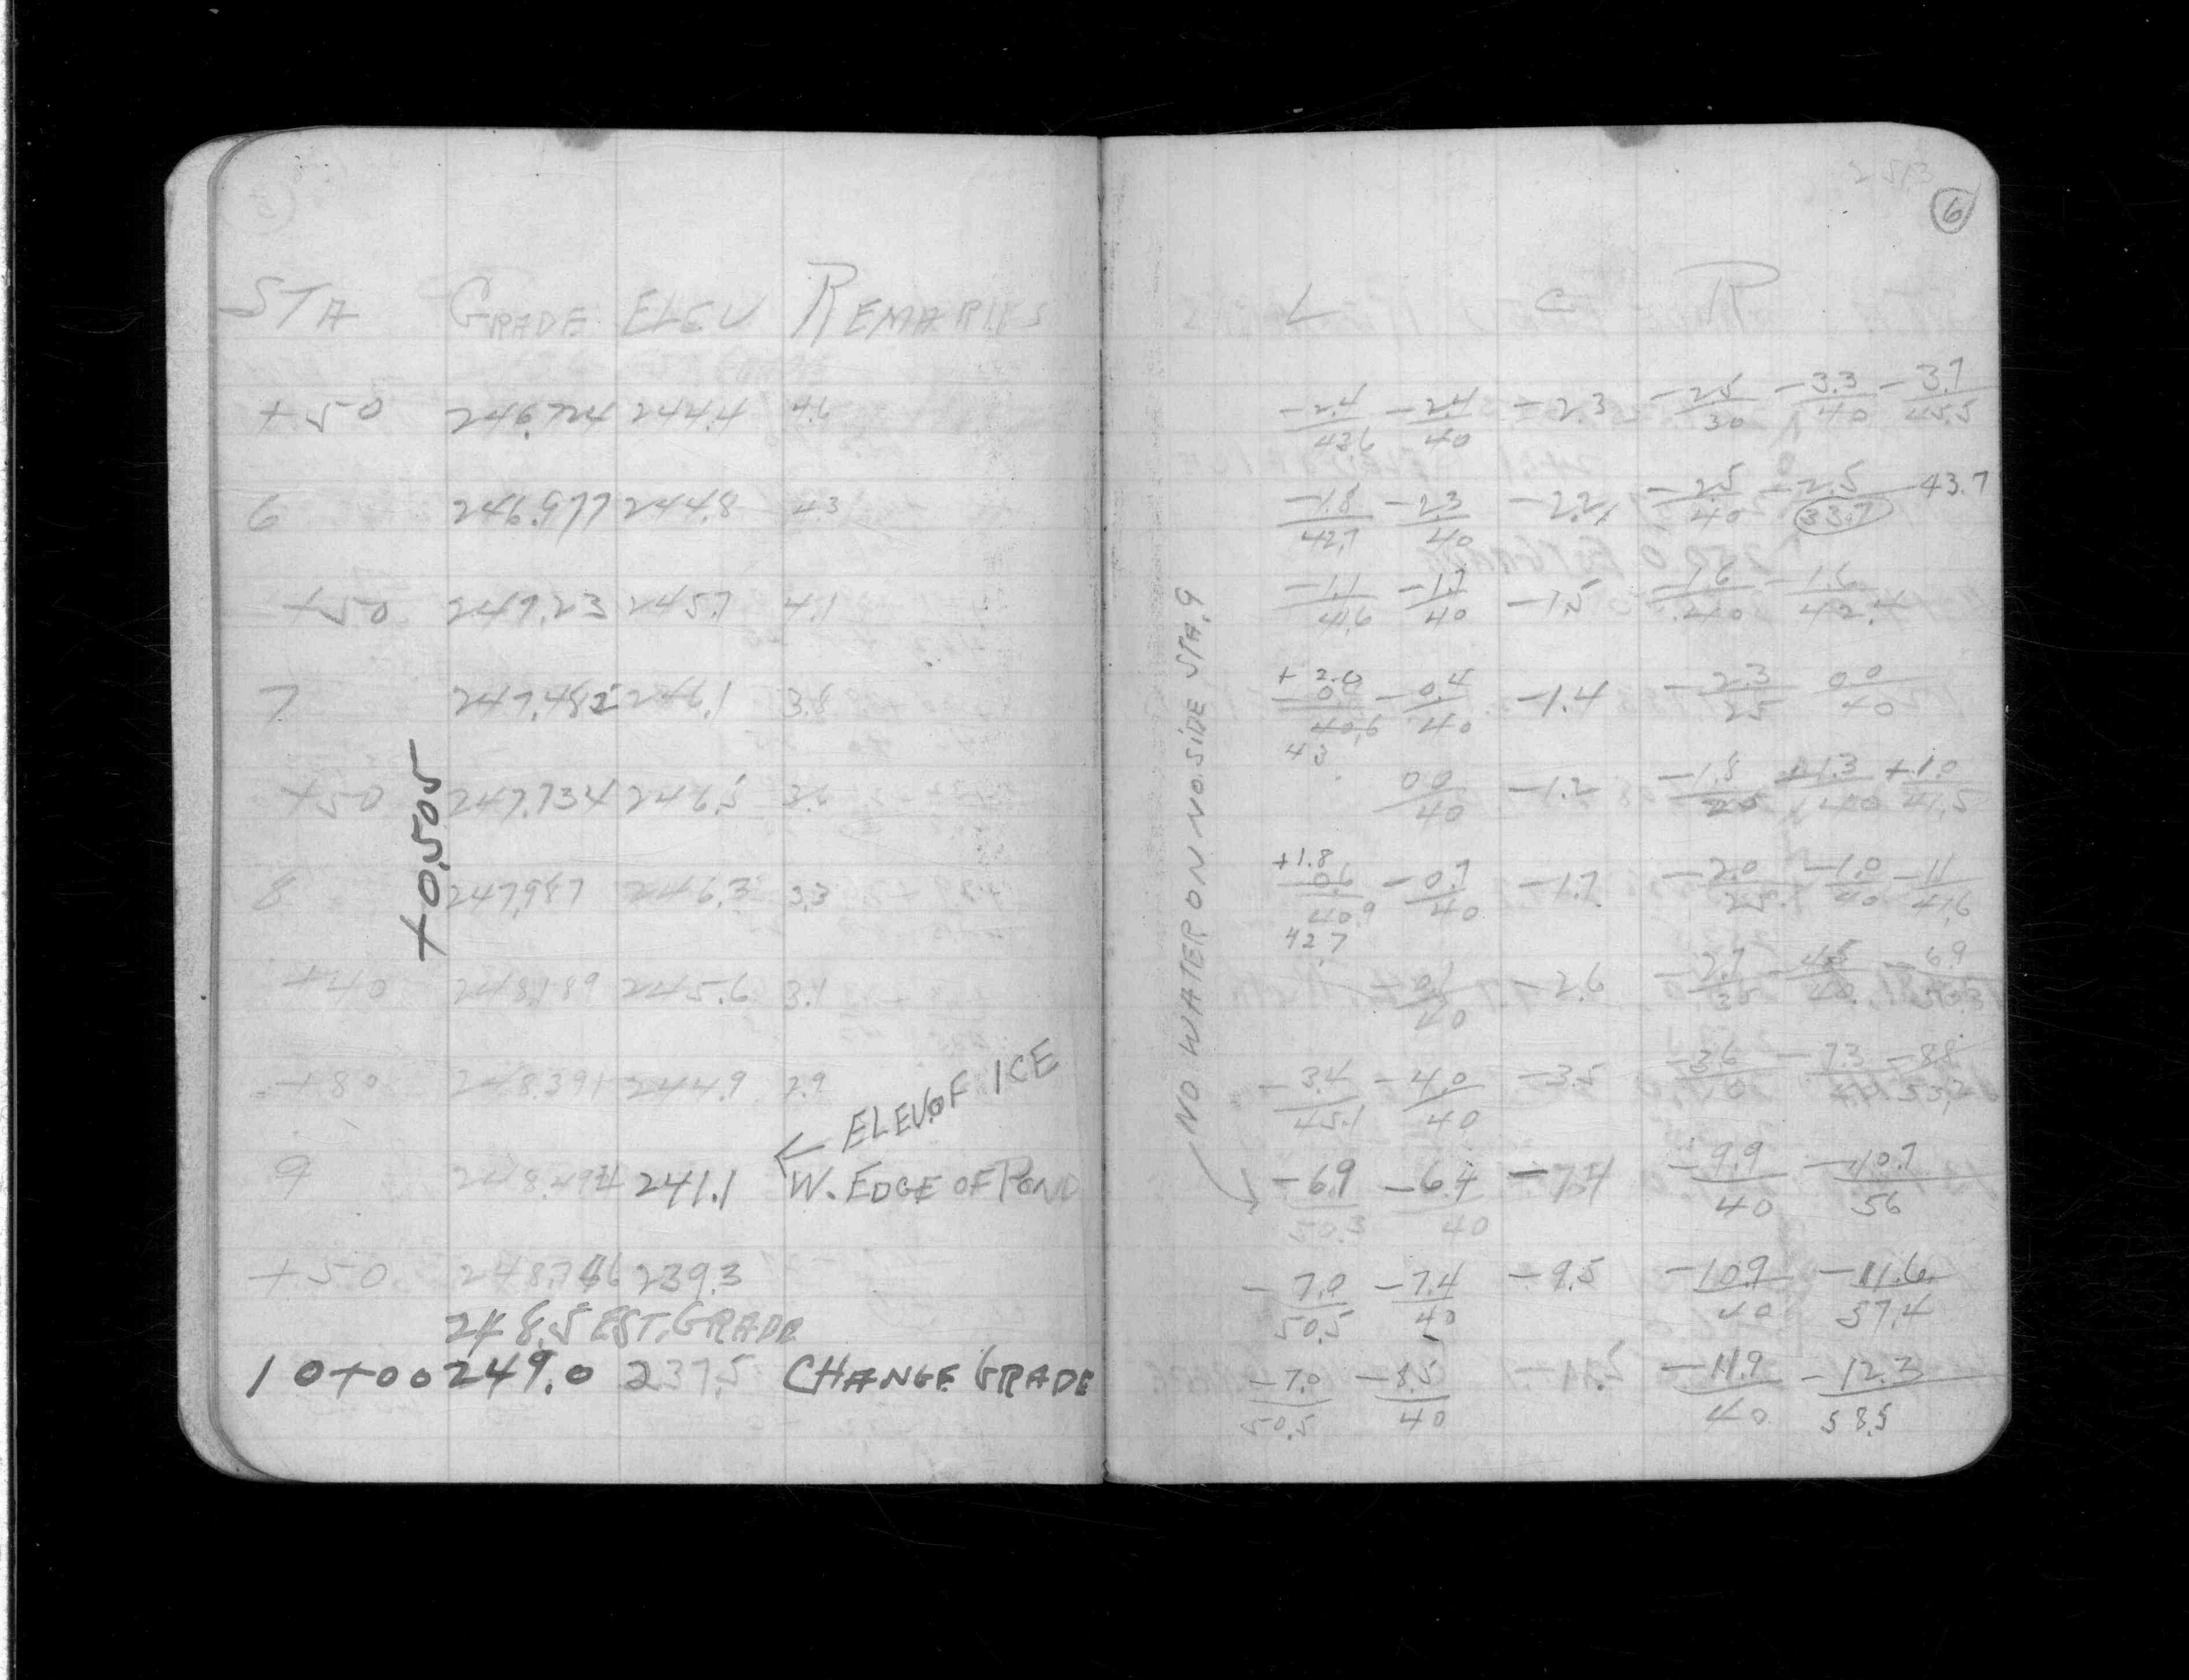 STA GRADE ELEV REMARKS
+50 246.724 244.4 4.6
6 246.977 244.8 4.3
+50 247.23 245.7 4.1
7 247.482 246.1 3.8
+50 247.734 246.5 3.6
8 247.987 246.3 3.3
+40 248.189 245.6 3.1
+80 248.391 244.9 2.9
← ELEV. OF ICE
9 241.1 W. EDGE OF POND
+50 239.3
248.5 EST. GRADE
10+00 249.0 237.5 CHANGE GRADE
+0.505
6
L C R
-2.4 -2.4 -2.3 -2.5 -3.3 -3.7
43.6 40 30 40 45.5
-1.8 -2.3 -2.2 -2.5 -2.5 43.7
42.7 40 40 33.7
-1.1 -1.7 -1.5 -1.6 -1.6
41.6 40 40 42.4
+2.0
-0.4 -1.4 -2.3 0.0
40.6 40 25 40
43
0.0 -1.2 -1.8 +1.3 +1.0
40 25 40 41.5
+1.8
0.6 -0.7 -1.7 -2.0 -1.0 -1.1
40.9 40 25 40 41.6
42.7
-2.6 -2.7 -6.9
40 35 40
-3.4 -4.0 -3.5 -3.6 -7.3 -8.8
45.1 40 53.2
-6.9 -6.4 -7.4 -9.9 -10.7
50.3 40 40 56
-7.0 -7.4 -9.5 -10.9 -11.6
50.5 40 40 57.4
-7.0 -8.5 -11.5 -11.9 -12.3
50.5 40 40 58.5
NO WATER ON NO. SIDE STA. 9